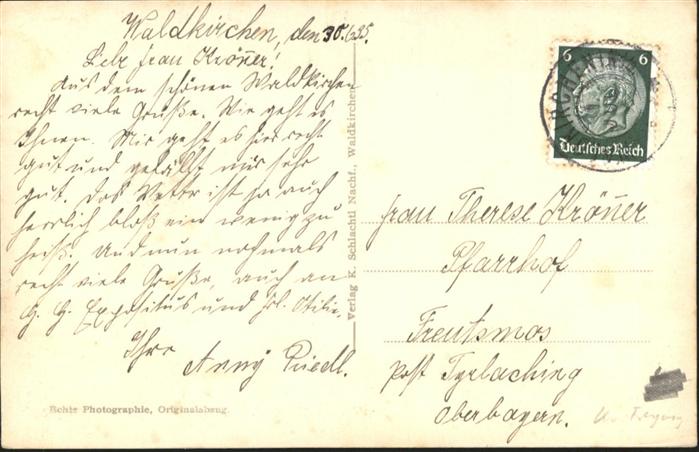 Waldkirchen, den 30.6.35.
Liebe Frau Kröner!
Aus dem schönen Waldkirchen
recht viele Grüße. Wie geht es
Ihnen. Mir geht es hier recht
gut und gefällt mir sehr
gut. Das Wetter ist ja auch
herrlich bloß ein wenig zu
heiß. Und nun nochmals
recht viele Grüße, auch an
H. H. Expositus und Frl. Otilie.
Ihre
Anny Riedl.
Echte Photographie, Originalabzug.
Verlag K. Schlachtl Nachf., Waldkirchen
6 6
Deutsches Reich
Frau Therese Kröner
Pfarrhof
Freutsmos
Post Tyrlaching
Oberbayern.